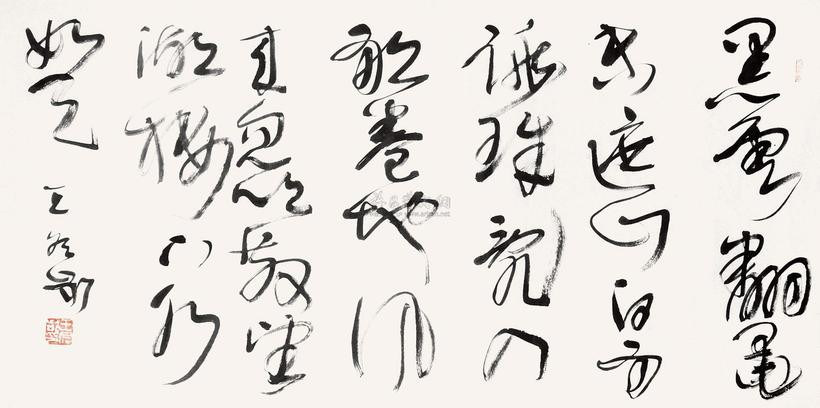 黑雲翻墨
未遮山白雨
跳珠亂入
船卷地風
來忽吹散望
湖樓下水
如天
王